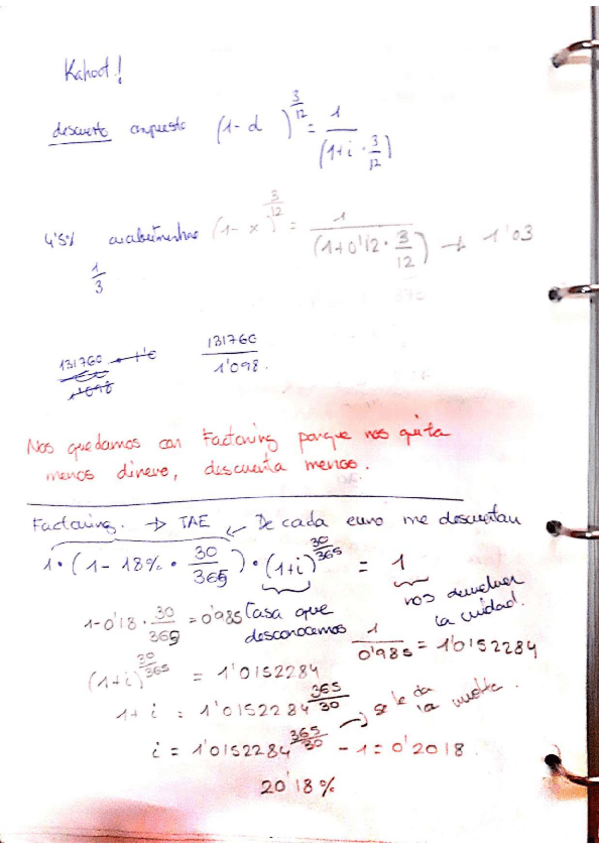 Kahoot!
descuento compuesto (1- d )^(3/12) = 1/(1+i · 3/12)
4'5% cuatrimestre (1- x )^(3/12) = 1/(1+0'12 · 3/12) → 1'03
1/3
131760 131760/1'098.
1'098
Nos quedamos con Factoring porque nos quita
menos dinero, descuenta menos.
Factoring. → TAE ← De cada euro me descuentan
1 · (1 - 18% · 30/365) · (1+i)^(30/365) = 1
1-0'18 · 30/365 = 0'985 tasa que desconocemos
nos devuelven la unidad.
1/0'985 = 1'0152284
(1+i)^(30/365) = 1'0152284
1+ i = 1'0152284^(365/30)
→ se le da la vuelta.
i = 1'0152284^(365/30) - 1 = 0'2018.
20'18%